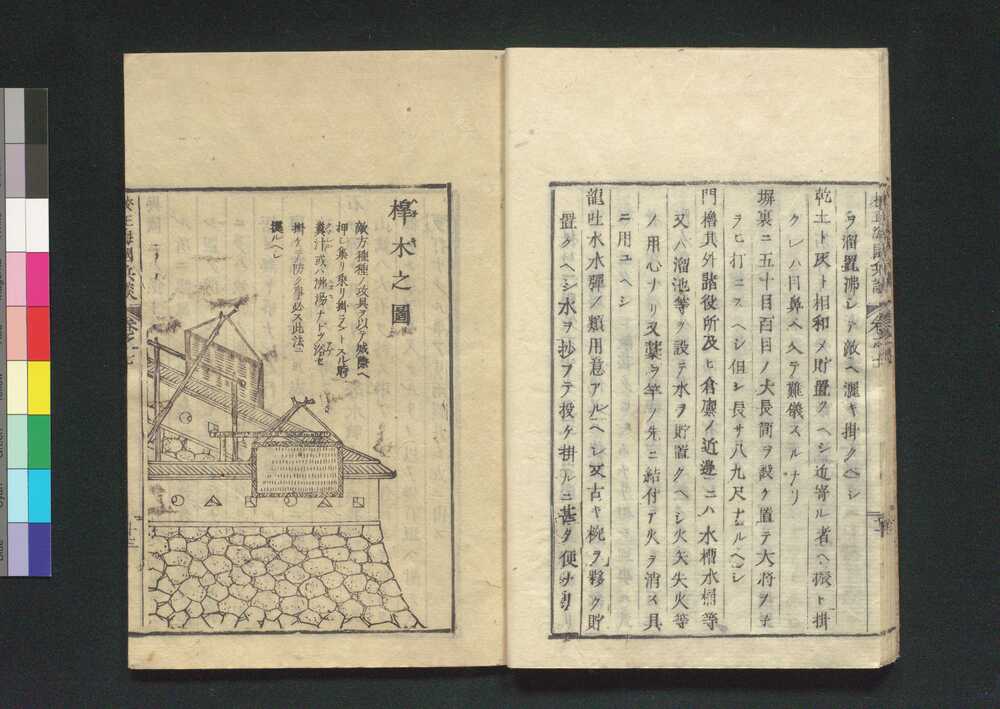 ヲ溜置沸シテ敵ヘ灑キ掛クヘシ
乾土ト灰ト相和メ貯置クヘシ近寄ル者ヘ振ト掛
クレハ目鼻ヘ入テ難儀スルナリ
塀裏ニ五十目百目ノ大長筒ヲ設ケ置テ大将ヲ子
ラヒ打ニスヘシ但シ長サ八九尺ナルヘシ
門櫓其外諸役所及ヒ倉廩ノ近邊ニハ水槽水桶等
又ハ溜池等ヲ設テ水ヲ貯置クヘシ火矢失火等
ノ用心ナリ又藁ヲ竿ノ先ニ結付テ火ヲ消ス具
ニ用ユヘシ
龍吐水水彈ノ類用意アルヘシ又古キ椀ヲ夥ク貯
置クヘシ水ヲ抄フテ投ケ掛ルニ甚タ便ナリ
槹木之圖
敵方種種ノ攻具ヲ以テ城際ヘ
押シ集リ乗リ掛ラントスル時
糞汁或ハ沸湯ナトヲ浴セ
掛ケテ防ク事必ス此法ニ
據ルヘシ